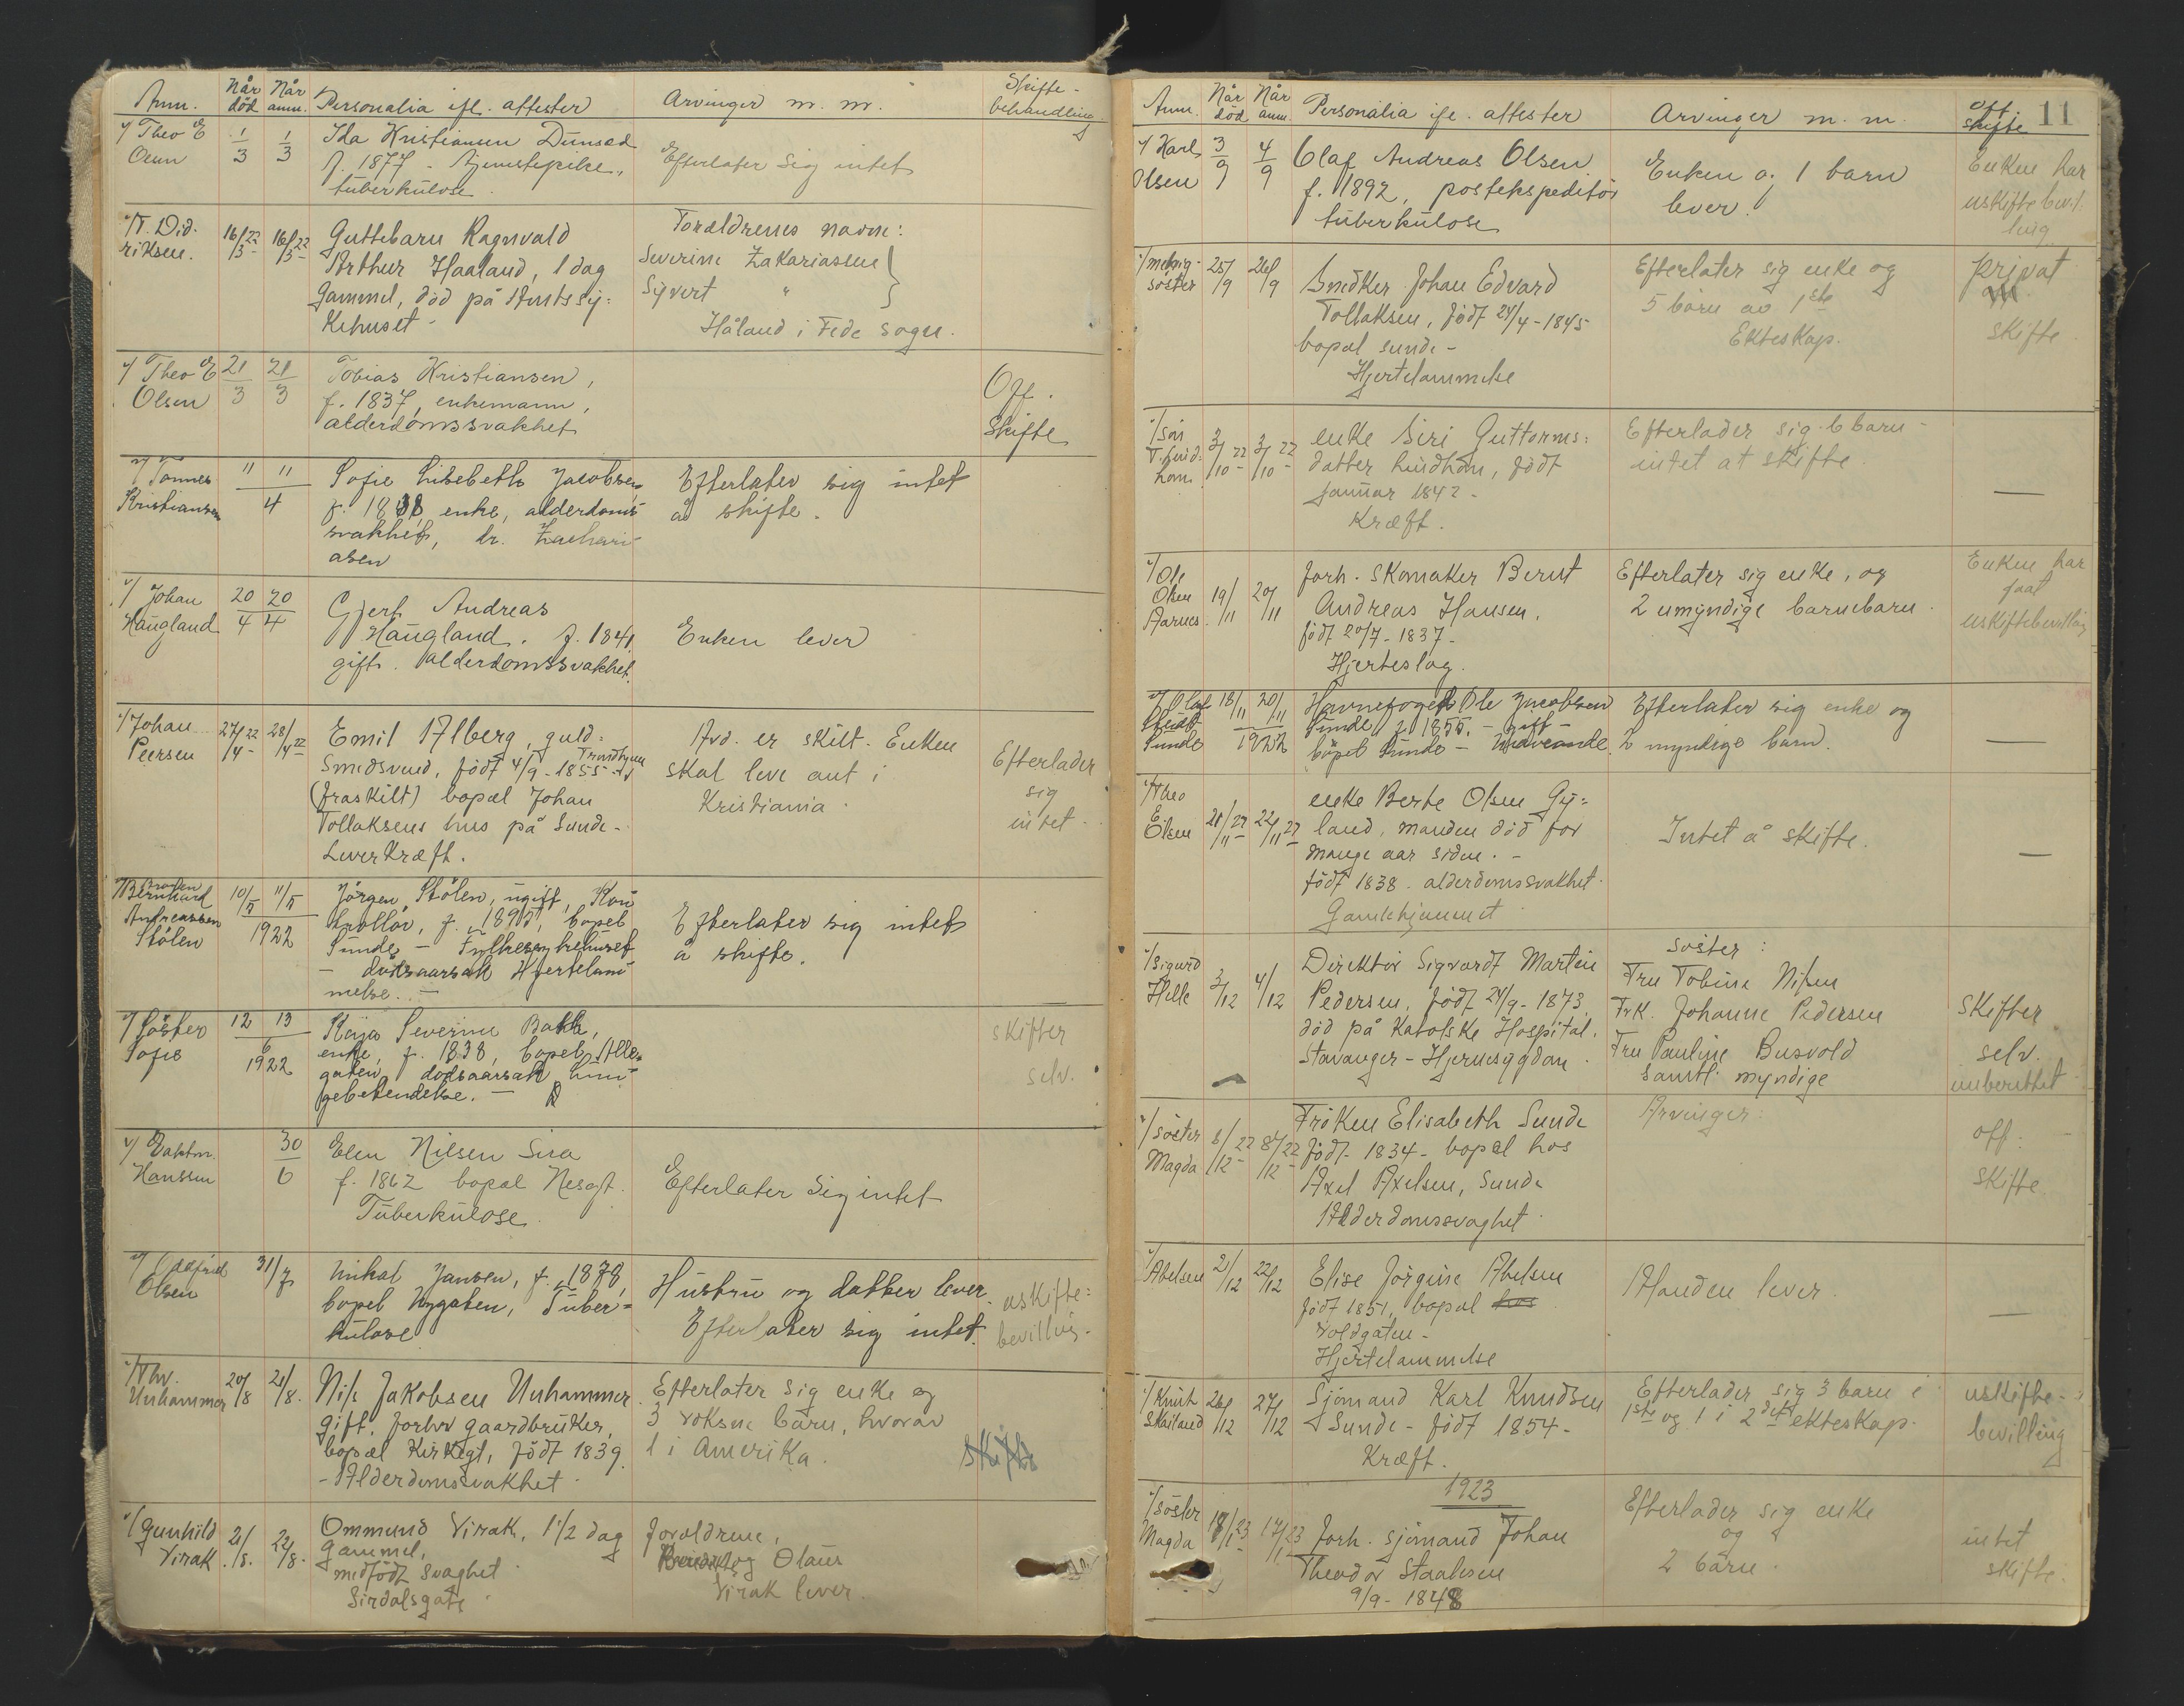 Anm. Når død Når anm. Personalia ifl. attester Arvinger m. m. Skifte-behandling
v/ Theo E Olsen 1/3 1/3 Ida Kristiansen Dunsæd
f. 1877 - tjenestepike,
tüberkülose.
Efterlater sig intet
v/ T. Did-
riksen. 16/3 22 16/3 22 Guttebarn Ragnvald
Arthur Haaland, 1 dag
gammel, død på Amtssy-
kehuset -
Forældrenes navne:
Severine Zakariassen
Syvert "
Håland i Fede sogn.
v/ Theo E
Olsen 21/3 21/3 Tobias Kristiansen,
f. 1837, enkemann,
alderdomssvakhet
Off.
Skifte
v/ Tønnes
Kristiansen 11 11/4 Sofie Lisebeth Jacobsen,
f. 1838, enke, alderdoms-
svakhet, dr. Zachari-
asen
Efterlater sig intet
å skifte.
v/ Johan
Haugland 20/4 20/4 Gjert Andreas
Haugland. f. 1841
gift. Alderdomssvakhet.
Enken lever
v/ Johan
Peersen 27/4 22 28/4 22 Emil Ahlberg, guld-
smedsvend, født 4/9-1855 Trondhjem
(fraskilt) bopæl Johan
Tollaksens hus på Sunde -
Leverkræft.
Avd. er skilt. Enken
skal leve ant i
Kristiania.
Efterlader
sig
intet.
v/ Broren
Bernhard
Andreassen
Stølen 10/5 11/5 1922 Jørgen Stølen, ugift, Kon
trollør, f. 1895, bopel
Sunde - Fylkessykehuset
- dødsaarsak Hjertelam-
melse. -
Efterlater sig intet
å skifte.
v/ Søster
Sofie 12 13/6 1922 Kaja Severine Bakke,
enke, f. 1838, bopel Alle-
gaten, dødsaarsak lun-
gebetendelse. -
skifter
selv.
v/ Vaktm.
Hanssen 30/6 Elen Nilsen Sira
f. 1862 bopæl Nesgt.
Tüberkülose.
Efterlater sig intet
v/ Oddfried
Olsen 31/7 Mikal Jansen, f. 1878,
bopel Nygaten, Tuber-
külose
Hustru og datter lever.
Efterlater sig intet.
uskifte-
bevilling.
v/ Thv.
Unhammer 20/8 21/8. Nils Jakobsen Unhammer
gift, forhv gaardbruker,
bopæl Kirkegt, født 1839.
- Alderdomssvakhet.
Efterlater sig enke og
3 voksne barn, hvorav
1 i Amerika.
Skifte
v/ Gunhild
Virak 21/8. 22/8. Ommund Virak, 1 1/2 dag
gammel,
medfødt svaghet.
Sirdalsgate.
Forældrene,
og Olaus
Virak lever.
11
Anm. Når død Når anm. Personalia ifl. attester Arvinger m. m. Off. skifte
v/ Karl
Olsen 3/9 4/9 Olaf Andreas Olsen
f. 1892, postekspeditør
tüberkülose
Enken og 1 barn
lever.
Enken har
uskiftebevil-
ling
v/ menig-
søster 25/9 26/9 Snedker Johan Edvard
Tollaksen, født 25/4-1845
bopæl Sunde -
Hjertelammelse
Efterlater sig enke og
5 barn av 1ste
Ekteskap.
privat
skifte
v/ søn
T. Lind-
hom 3/10 22 3/10 22 enke Siri Guttorms-
datter Lindhom, født
januar 1842 -
Kræft.
Efterlader sig 6 barn -
intet at skifte
v/ Ole
Olsen
Aarnes. 19/11 20/11 forh. skomaker Bernt
Andreas Hansen,
født 20/7-1837-
Hjerteslag.
Efterlater sig enke, og
2 umyndige barnebarn.
Enken har
faat
uskiftebevilling
v/ Olaf
Sunde 18/11 20/11 1922 Havnefoged Ole Jacobsen
Sunde, f. 1855. - gift -
bopel Sunde -
Efterlater sig enke og
2 myndige barn.
v/ Theo
E.
Olsen 21/11 22 22/11 22 enke Berte Olsen Gy-
land, manden død for
mange aar siden. -
født 1838. alderdomssvakhet.
Gamlehjemmet
Intet å skifte.
v/ Sigurd
Helle 3/12 4/12 Direktør Sigvardt Martin
Pedersen, født 24/9-1873
død på Katolske Hospital,
Stavanger - Hjernesygdom.
Søster:
Fru Tobine Nilsen
Frk. Johanne Pedersen
Fru Pauline Busvold
samtl. myndige
Skifter
selv.
uuberettet
v/ Søster
Magda 8/12 22 8/12 22 Frøken Elisabeth Sunde
født 1834 - bopæl hos
Axel Axelsen, Sunde
Alderdomssvaghet.
Arvinger:
off.
Skifte
v/ Abelsen 21/12 22/12 Elise Jørgine Abelsen
født 1851, bopæl hos
Voldgaten -
Hjertelammelse
Manden lever.
v/ Knut
Skailand 26/12 27/12 Sjømand Karl Knudsen
Sunde - født 1854 -
Kræft.
Efterlader sig 3 barn i
1ste og 1 i 2det ekteskap.
uskifte-
bevilling
1923
v/ Søster
Magda 17/1 23 17/1 23 Forh. sjømand Johan
Theodor Staalesen
9/9-1848
Efterlader sig enke
og
2 barn.
intet
skifte.